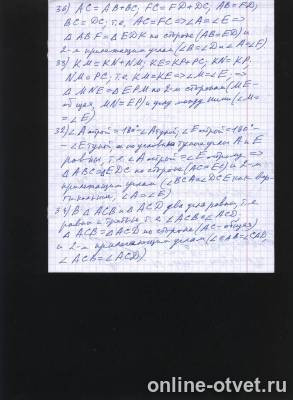 30) AC = AB + BC; FC = FD + DC; AB = FD;
BC = DC; т.е. AC = FC => ∠A = ∠E =>
Δ ABF = Δ EDK по стороне (AB = ED) и
2-м прилежащим углам (∠B = ∠D и ∠A = ∠F)
33) KM = KN + NM; KE = KP + PE; KN = KP,
NM = PE, т.е. KM = KE => ∠M = ∠E; =>
Δ MNE = Δ EPM по 2-м сторонам (ME -
общая, MN = EP) и углу между ними (∠M =
= ∠E)
32) ∠A = 180° - ∠A; ∠E = 180° -
- ∠E, по условию A и E
равны, т.е. ∠A = ∠E =>
Δ ABC = Δ EDC по стороне (AC = EC) и 2-м
прилежащим углам (∠BCA = ∠DCE как вер-
тикальные, ∠A = ∠E)
34) В Δ ACB и Δ ACD два угла равны, т.е.
равны и третьи, т.е. ∠ACB = ∠ACD
Δ ACB = Δ ACD по стороне (AC - общая)
и 2-м прилежащим углам (∠CAB = ∠CAD,
∠ACB = ∠ACD)
online-otvet.ru